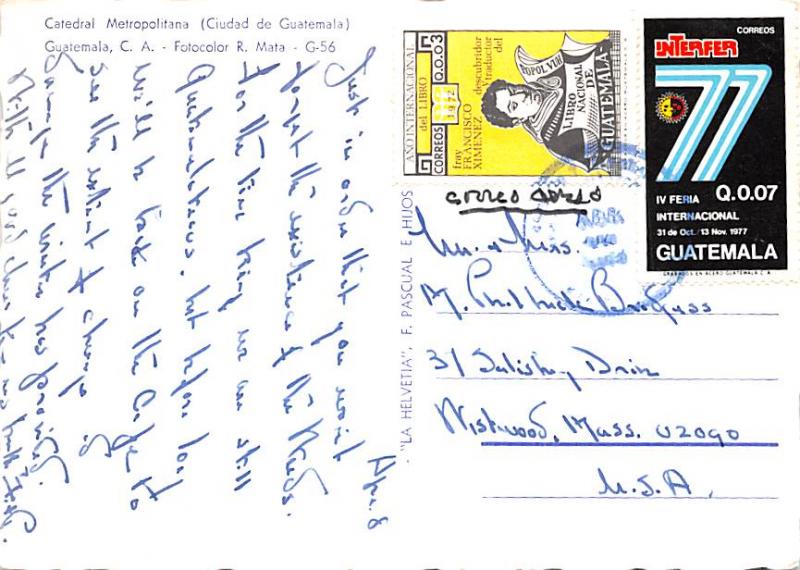 Catedral Metropolitana (Ciudad de Guatemala)
Guatemala, C. A. - Fotocolor R. Mata - G-56
Apr. 8
Just in order that you won't
forget the existence of the
For the time being we are still
Guatemaltecos, but before long
will be back on the Cape to
see the extent of change &
the winter has provided.
With all good cheer for us both
"LA HELVETIA", F. PASCUAL E HIJOS
AÑO INTERNACIONAL
del LIBRO
CORREOS 1972 Q.0.03
fray
FRANCISCO
XIMENEZ
descubridor
y traductor
del
POPOL VUH
LIBRO
NACIONAL
DE
GUATEMALA
CORREOS
INTERFER
77
IV FERIA Q.0.07
INTERNACIONAL
31 de Oct./13 Nov. 1977
GUATEMALA
GRABADOS EN ACERO GUATEMALA C.A.
CORREO AEREO
Mr. & Mrs.
M.
31 Salisbury Drive
Westwood, Mass. 02090
U.S.A.